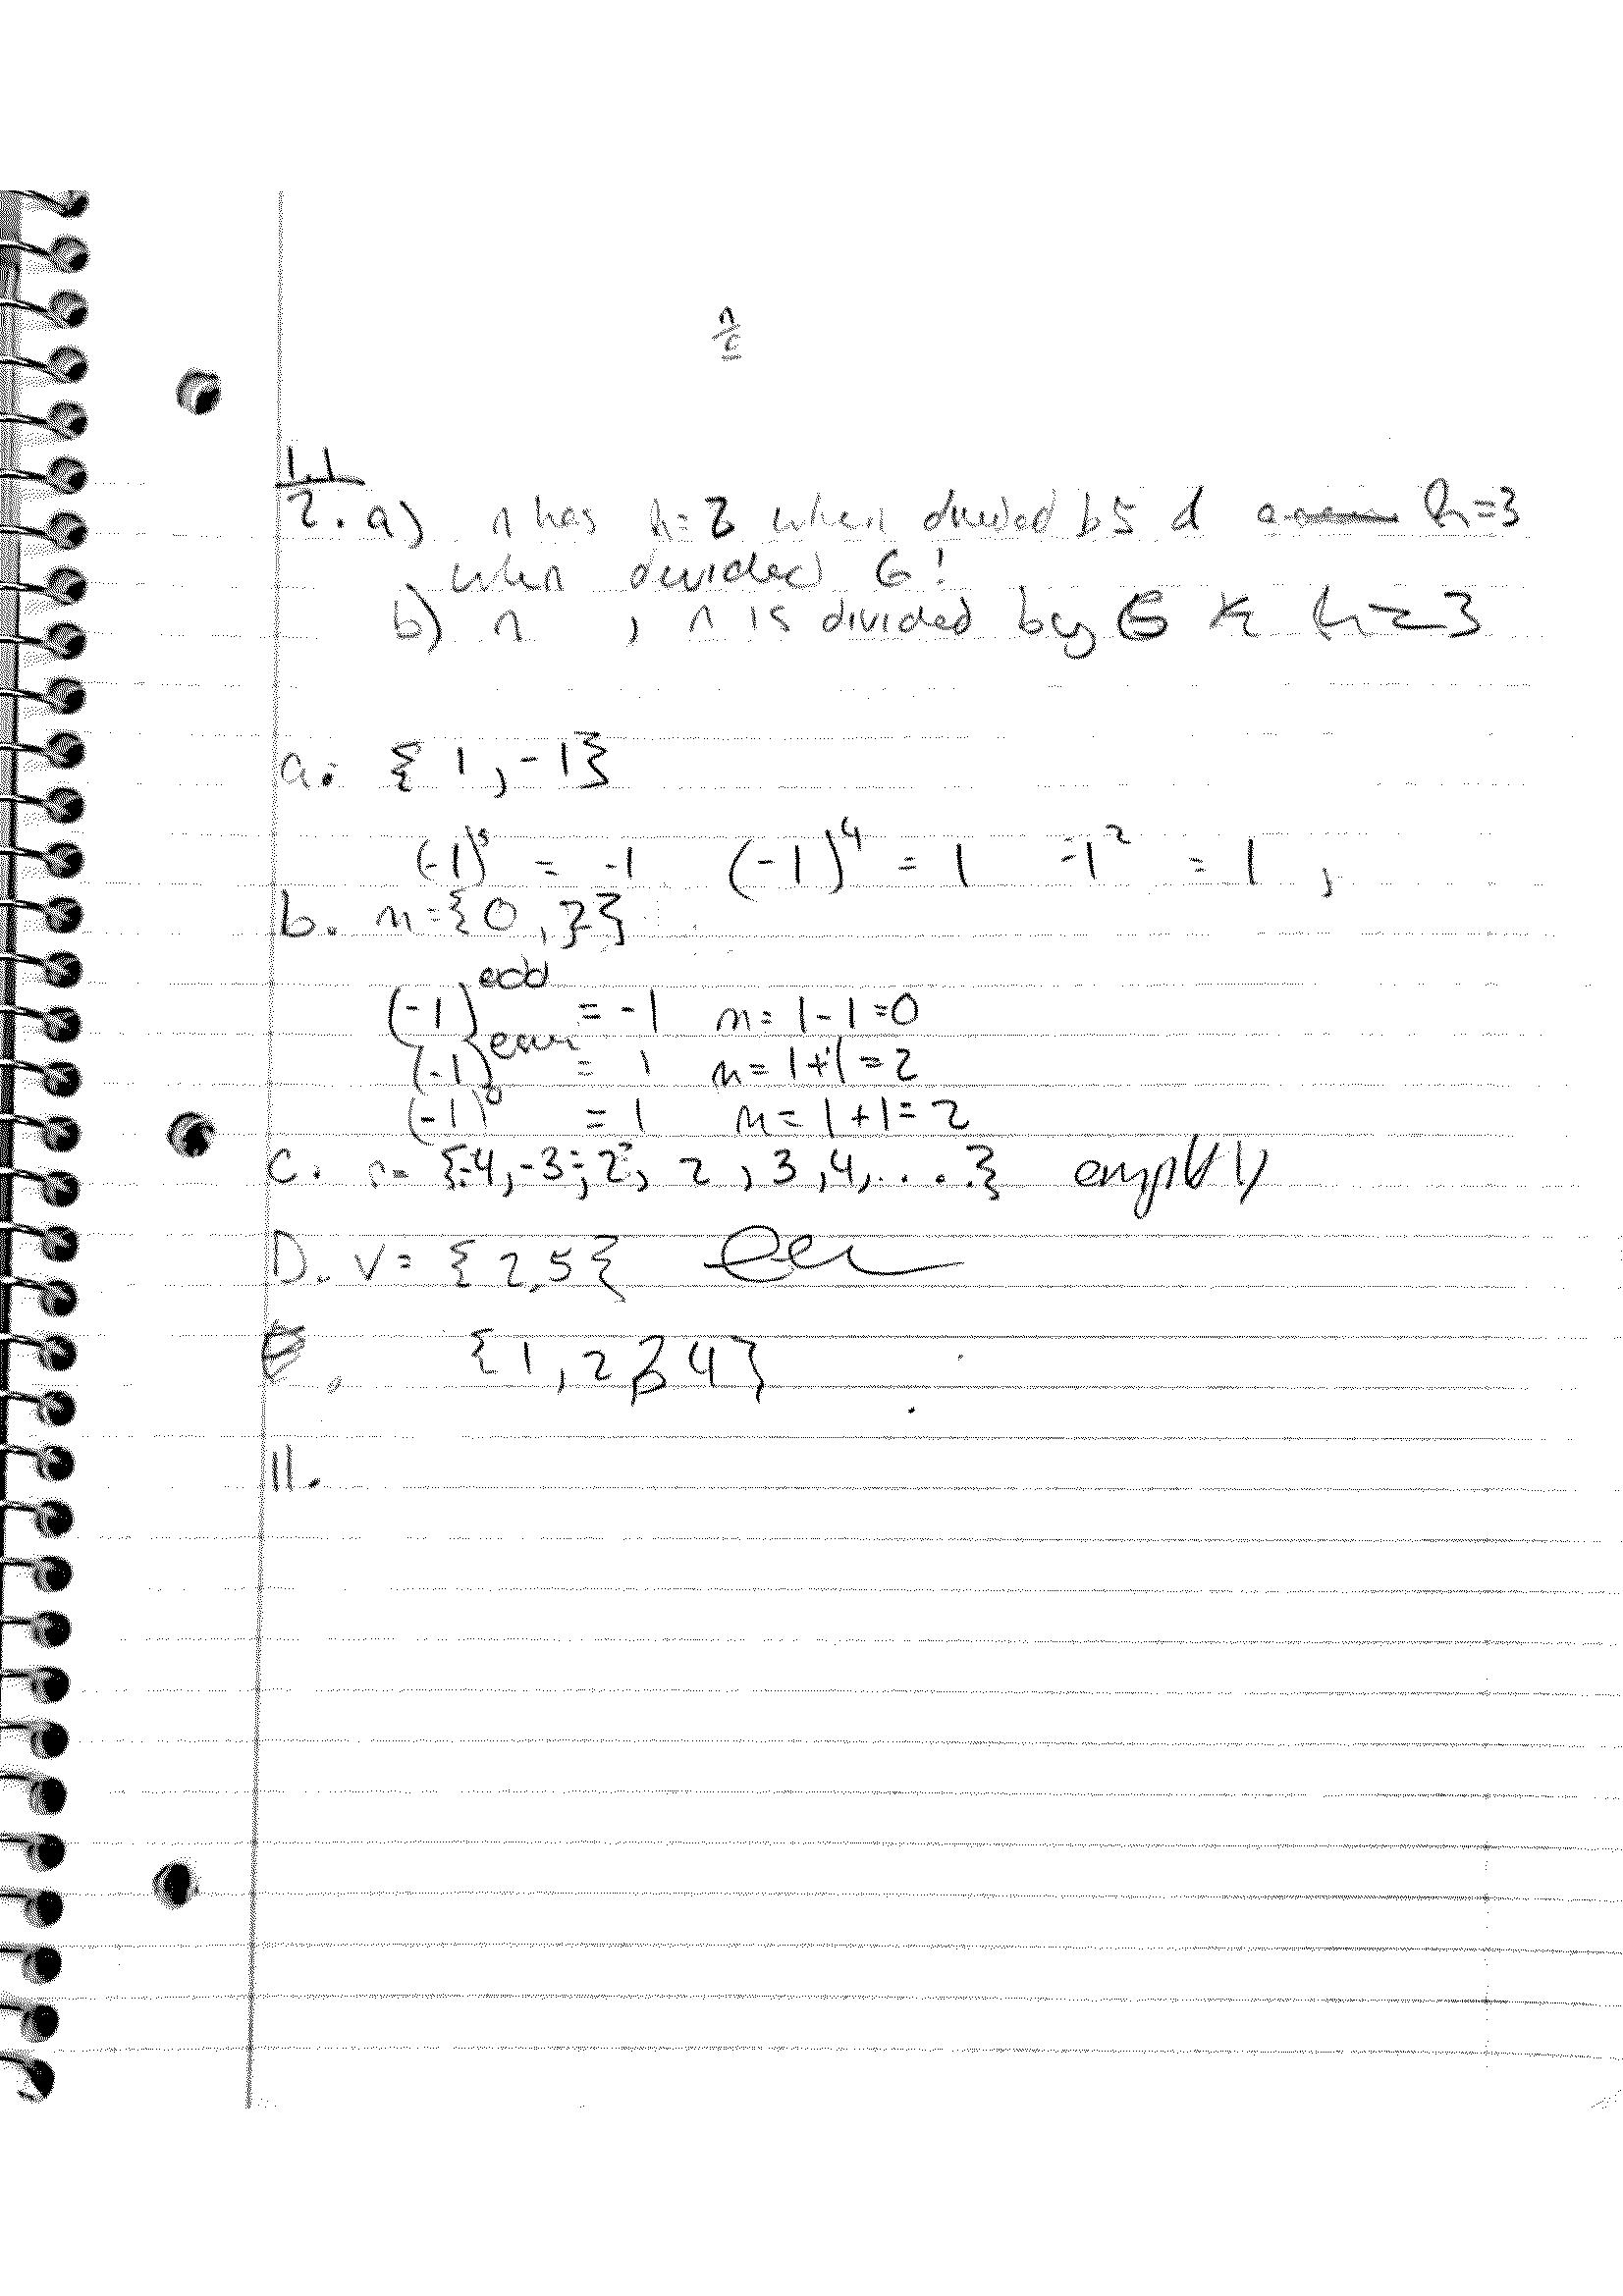 n
1.1
2. a) n has R=2 when divided b 5 d R=3
when devided 6!
b) n , n is divided by 6 R=3
a. { 1 , -1}
(-1)³ = -1 (-1)⁴ = 1 -1² = 1 ,
b. n={0, 2}
(-1)^odd = -1 n= 1-1=0
(-1) = 1 n= 1+1=2
(-1)⁰ = 1 n= 1+1= 2
C. {-4,-3,-2, 2 , 3 ,4,....}
D. v= {2,5}
{1, 2 3 4}
11.